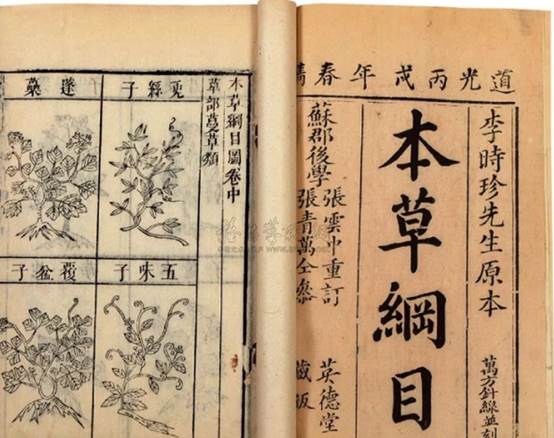 道光丙戌年春
李時珍先生原本
萬方針線並刻
本草綱目
蘇郡後學
張雲中重訂
張青萬仝參
英德堂
藏
本草綱目圖卷中
草部蔓草類
兎絲子
蓬蘽
五味子
覆盆子